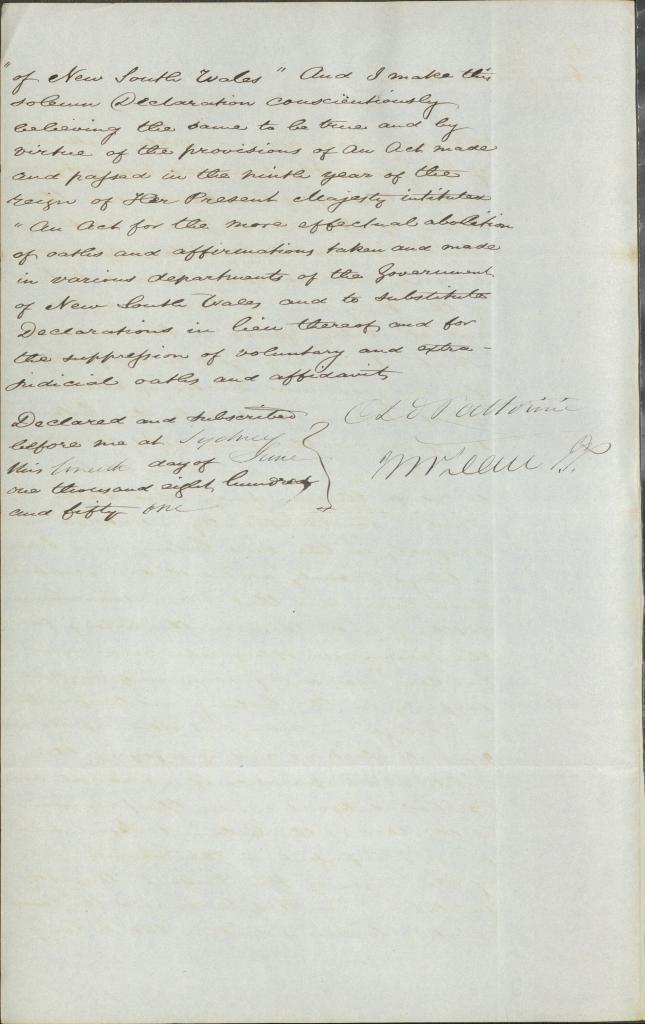 "of New South Wales" And I make this
solemn Declaration conscientiously
believing the same to be true and by
virtue of the provisions of an Act made
and passed in the ninth year of the
reign of Her Present Majesty intituled
"An Act for the more effectual abolition
of oaths and affirmations taken and made
in various departments of the Government
of New South Wales and to substitute
Declarations in lieu thereof and for
the suppression of voluntary and extra-
judicial oaths and affidavits
Declared and subscribed
before me at Sydney
this day of June
one thousand eight hundred
and fifty one